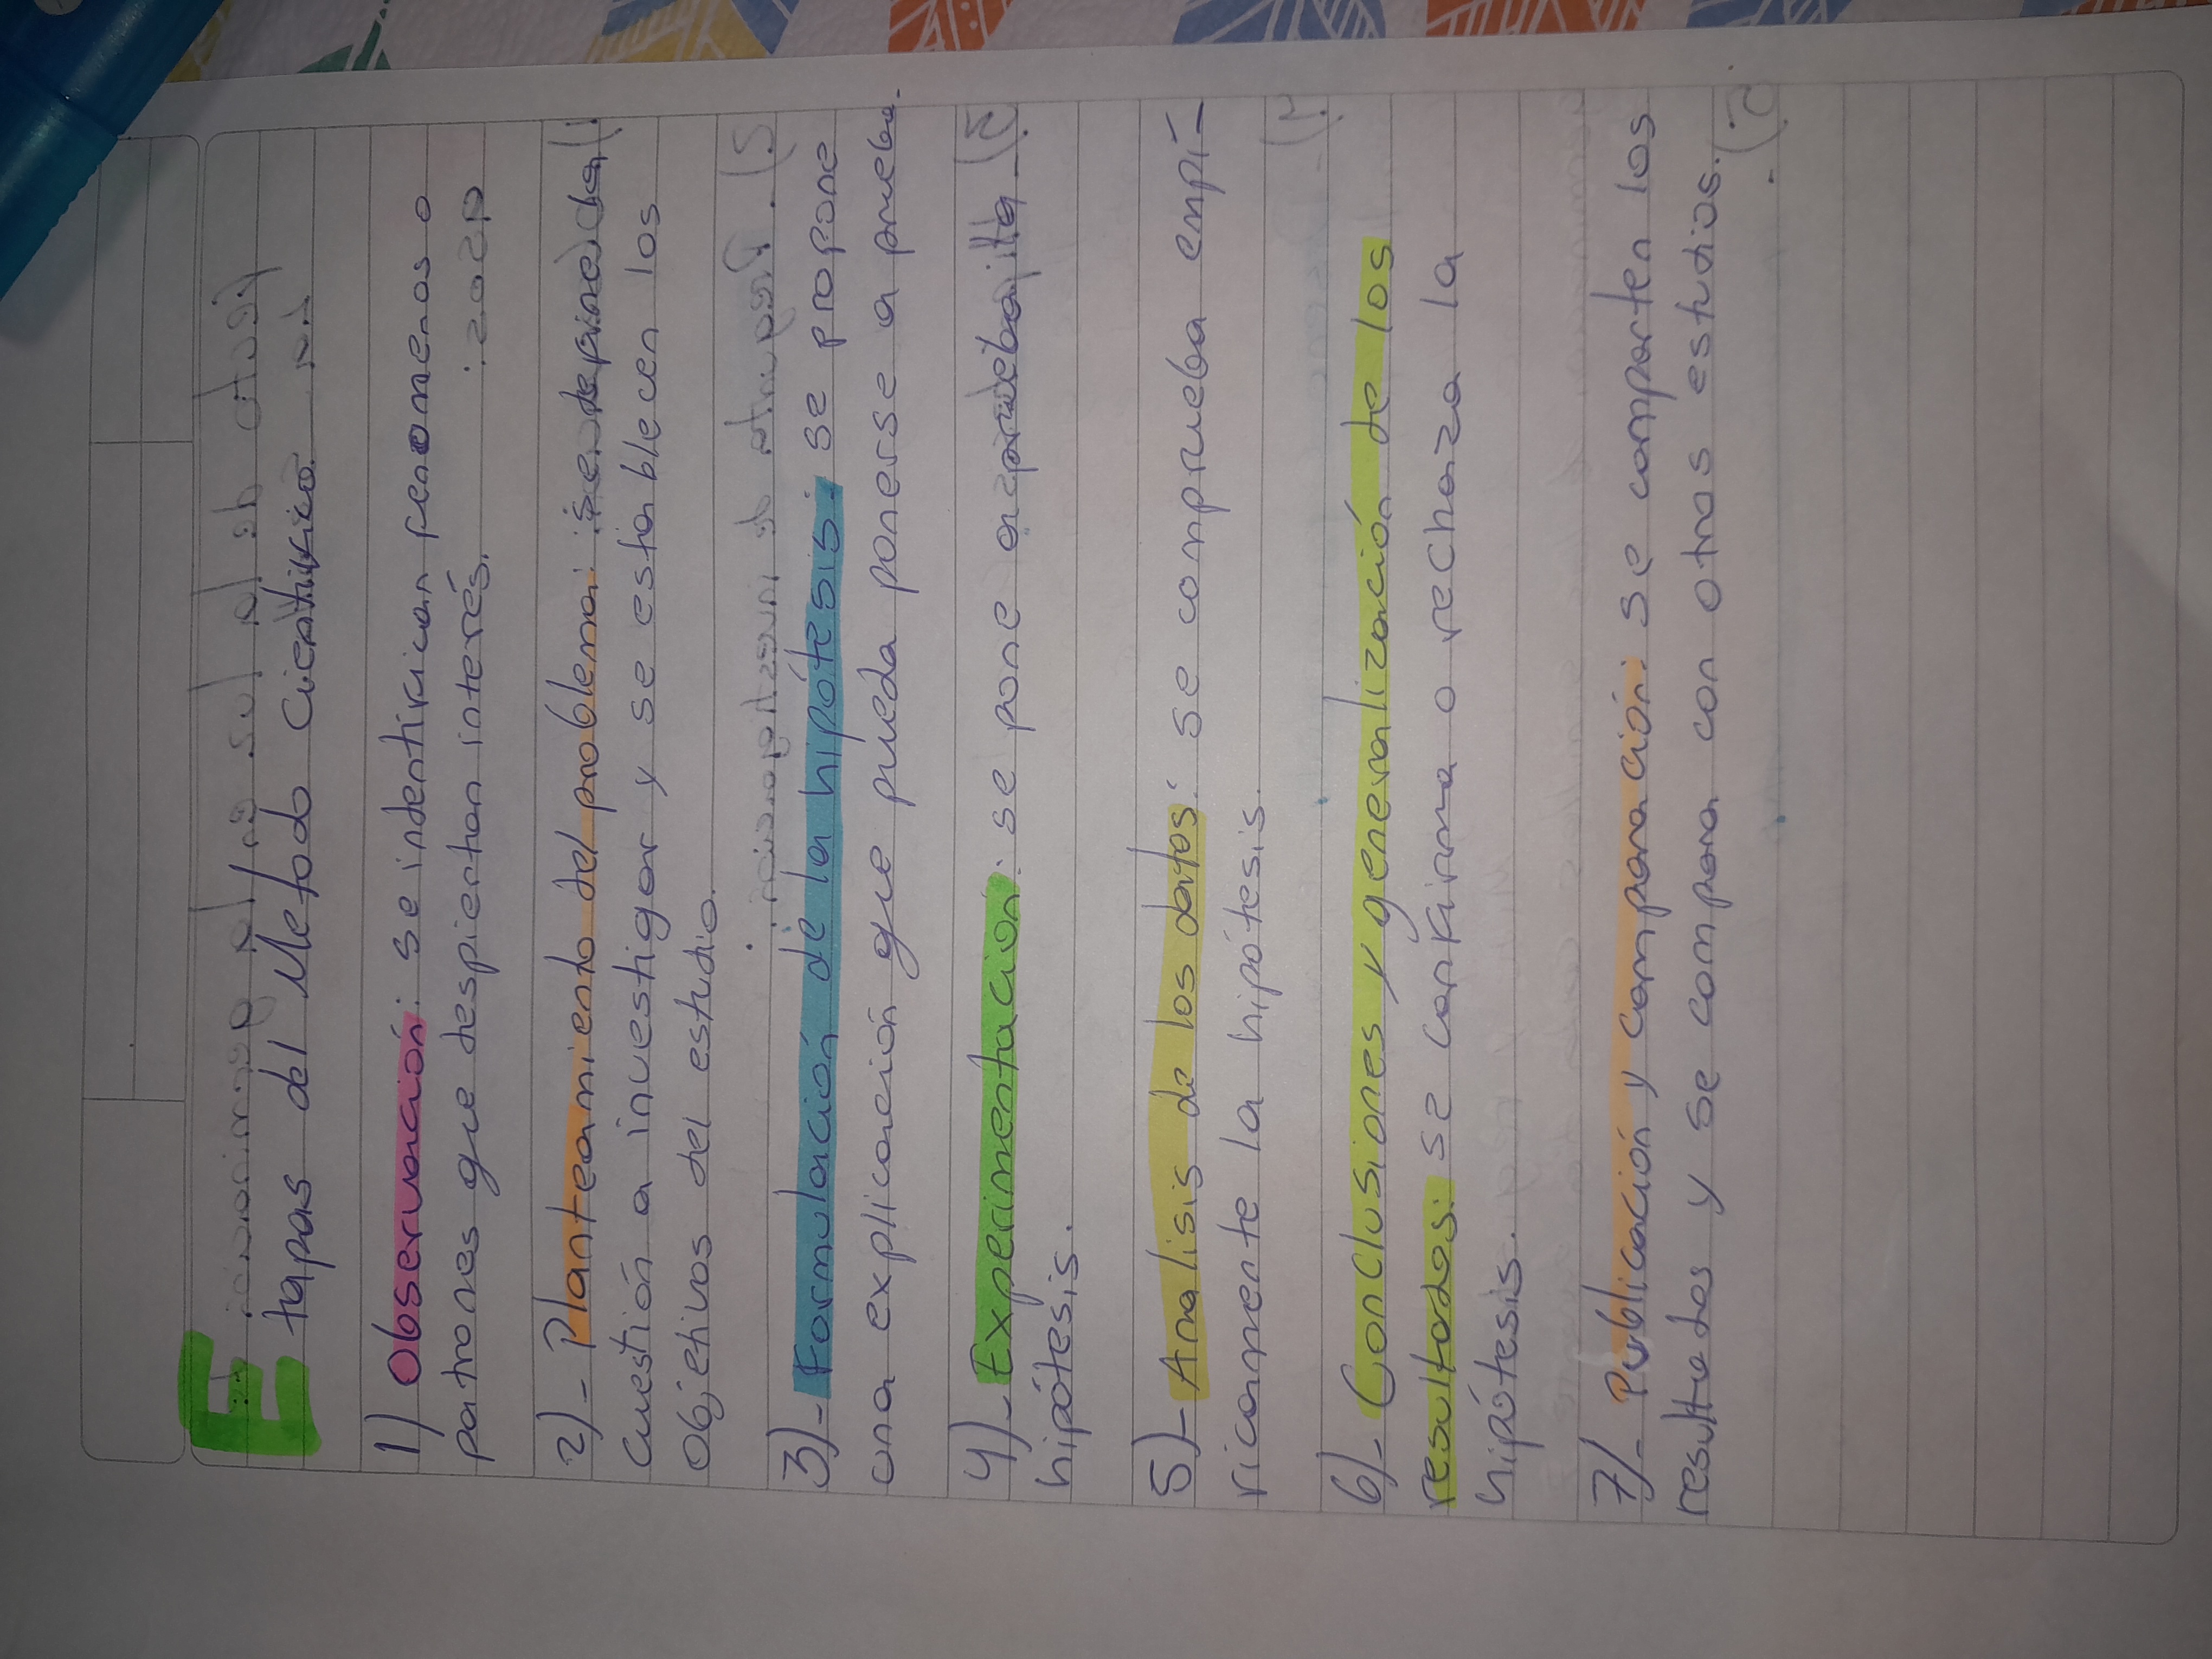 Etapas del Metodo Cientifico.
1) Observación: se indentifican fenomenos o
patrones que despiertan interés.
2)- Planteamiento del problema: se define la
Cuestión a investigar y se establecen los
Objetivos del estudio.
3)- Formulación de la hipótesis: se propone
una explicación que pueda ponerse a prueba.
4)- Experimentación: se pone a prueba la
hipótesis.
5)- Analisis de los datos: se comprueba empí-
ricamente la hipótesis.
6)- Conclusiones y generalización de los
resultados: se confirma o rechaza la
hipótesis.
7)- Publicación y comparación: se comparten los
resultados y se compara con otros estudios.